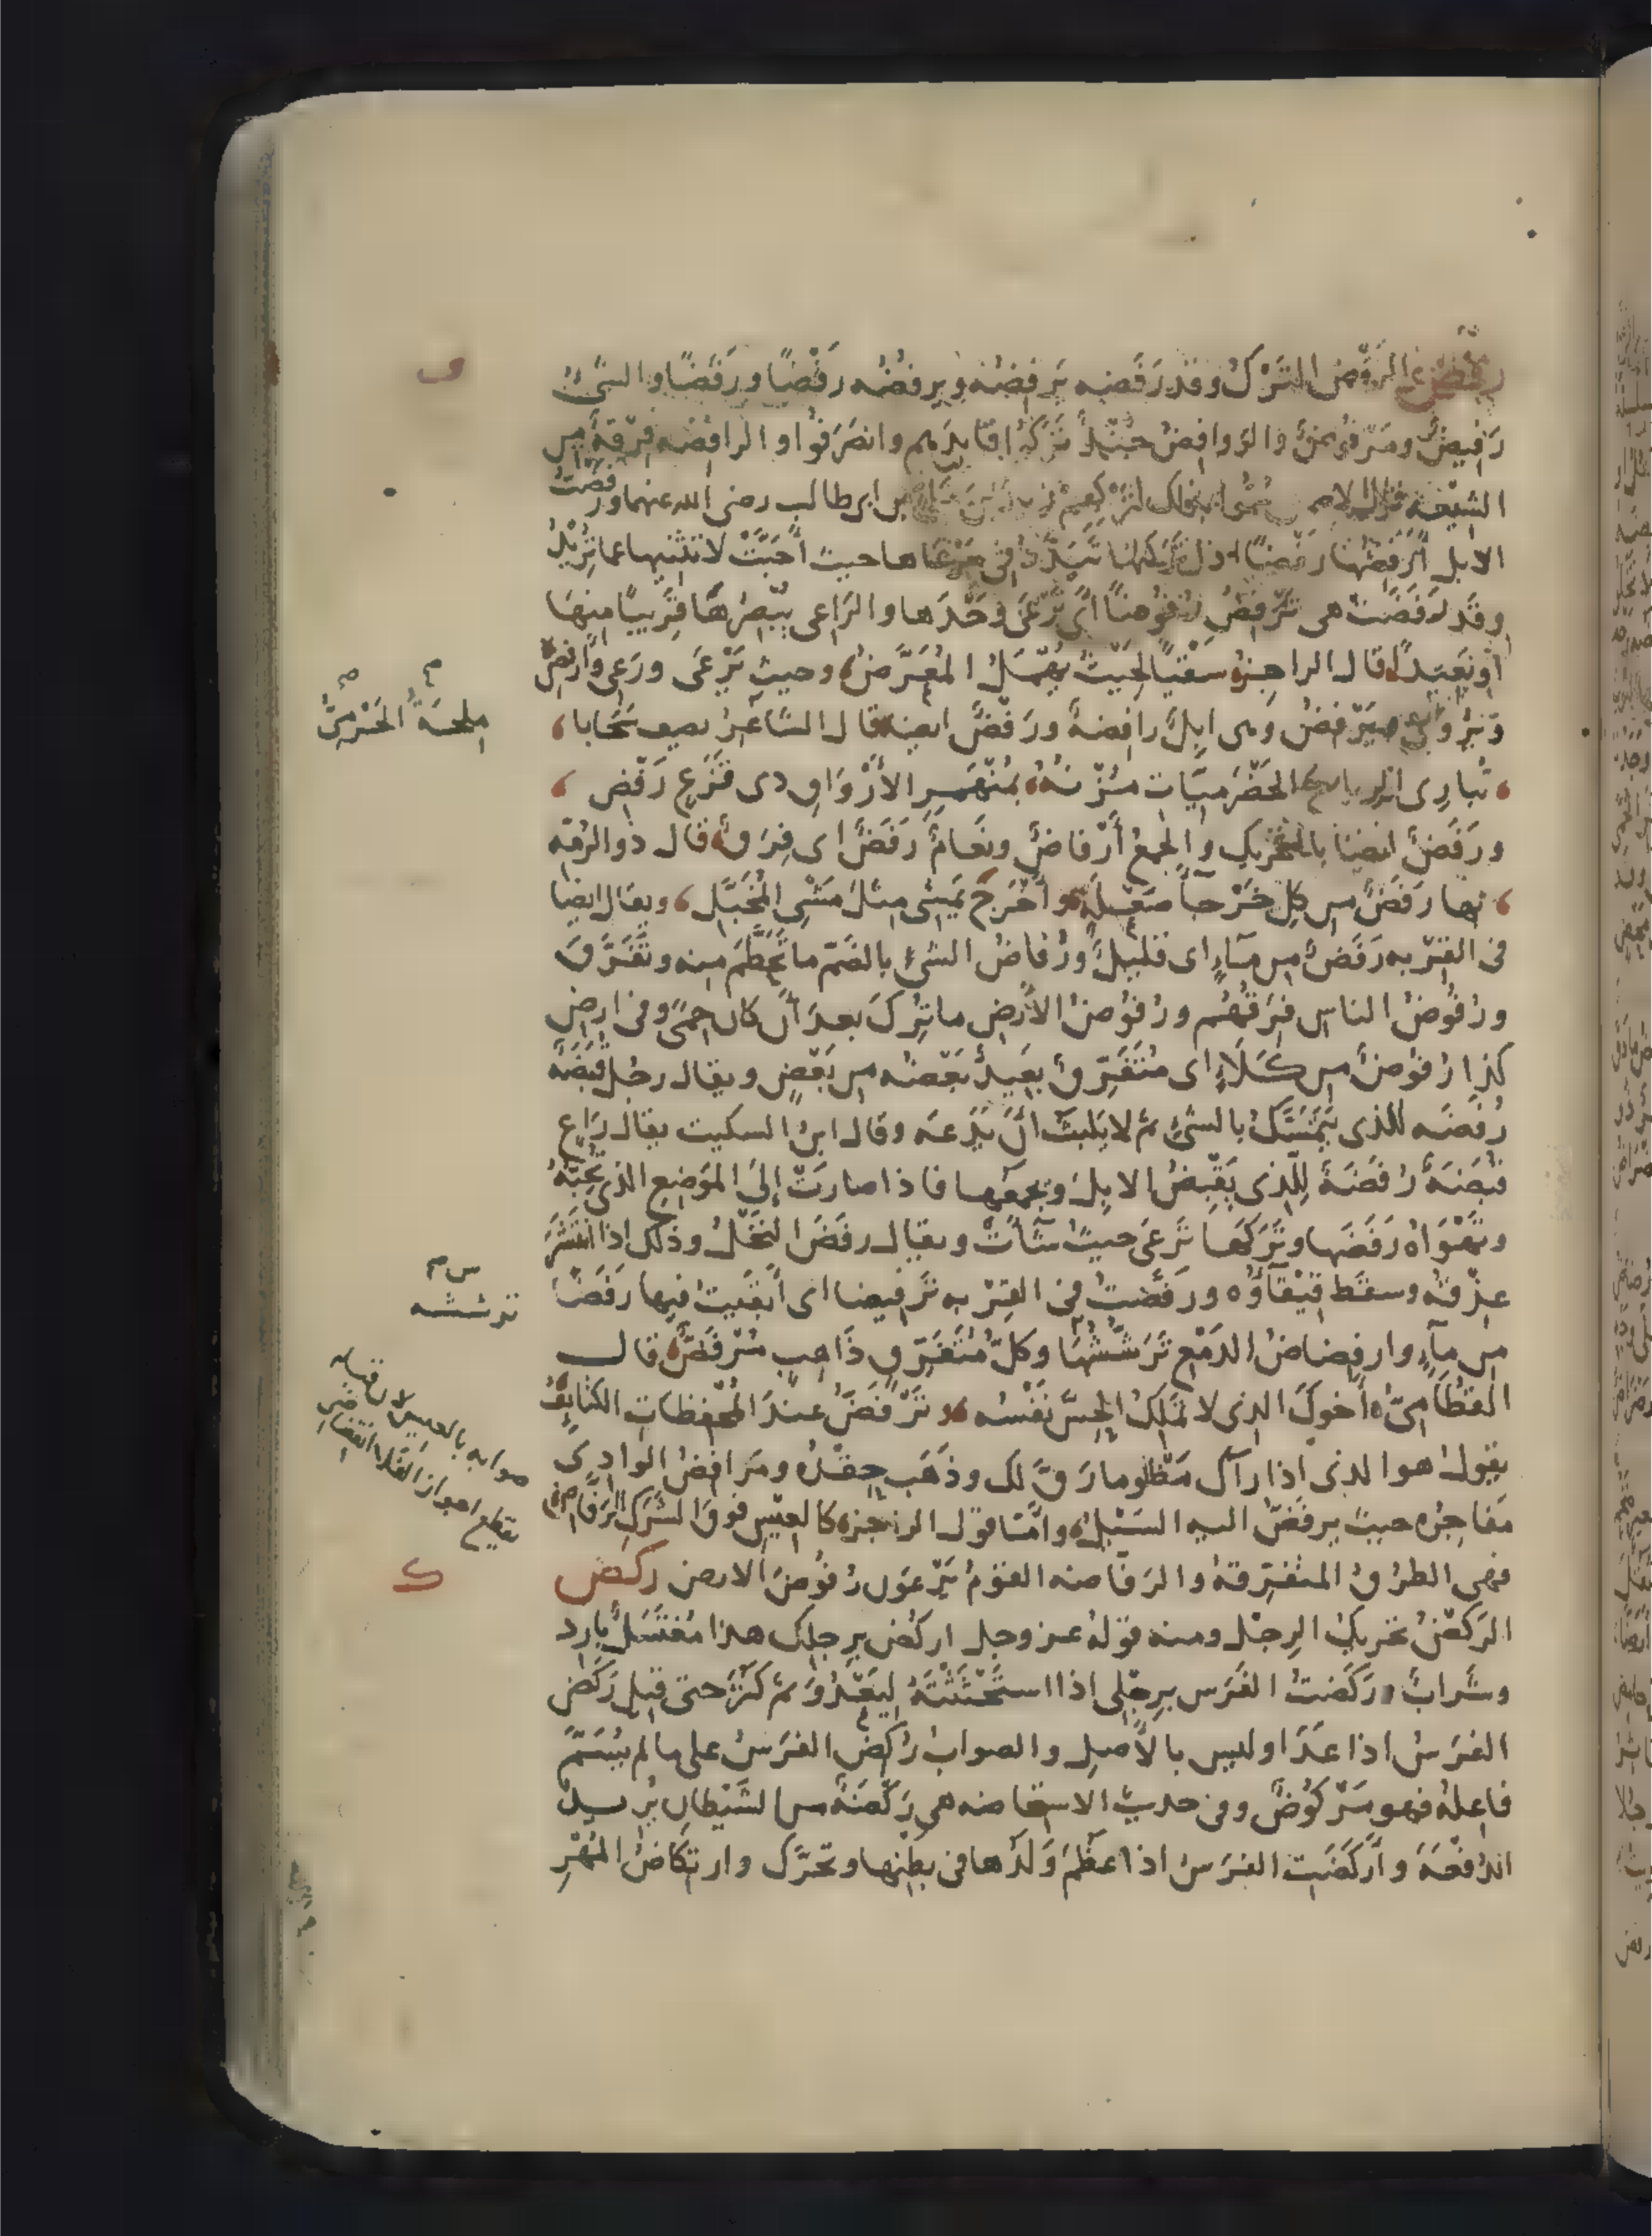 الرَّفْضُ التَّرْكُ وقد رَفَضَه يَرْفِضُه ويرفُضُه رَفْضًا ورَفَضًا والشئ
رَفيضٌ ومَرْفُوضٌ والروافِضُ جُنْدٌ تَرَكُوا قائِدَهم وانصَرَفُوا والرافِضَه فِرْقةٌ من
الشيعَه قال الاصمعى سُمُّوا بذلك لتَرْكِهِمْ زيدَ بنَ عَلىِّ بن ابى طالب رضى الله عنهما ورفَضْتُ
الابل أرْفِضُها رَفْضًا اذا تَركتَها تَبَدَّدُ فى مَرْعَاها حيث أَحَبَّتْ لا تثنيها عما تُرِيْدُ
وقَد رَفَضَتْ هى تَرْفِضُ رُفُوضًا أى تَرْعَى وَحْدَها والرَاعى يُبْصِرُها قَرِيبًا منها
أو بَعِيدًا قال الراجز سَقْيًا لِحَيْثُ يُهْمَلُ المُعَرَّضُ وحيث يَرْعَى ورَعِى وأرفِضُ
ويُرْوَى ويَرْفِضُ وَهى ابِلٌ رافِضةٌ ورَفْضٌ ايضا قال الشاعِرُ يصف سَحَابا
تُبارِى الرياحَ الحَضْرَميَّاتِ مُزْنُهُ بمُنْهَمِرِ الأَرْوَاقِ ذى قَزَعٍ رَفْضِ
ورَفَضٌ ايضًا بالتحْرِيك والجمعُ أَرْفاضٌ ونَعَامٌ رَفَضٌ اى فِرَقٌ قال ذو الرُمّه
بها رَفَضٌ من كلِ خَرْجآءَ صَعْلَةٍ وأَخْرَجَ يَمشى مثلَ مَشْىِ المُخَبَّلِ ويقال ايضا
فى القِرْبه رَفَضٌ من مآءٍ اى قليلٌ ورُفاضُ الشئ بالضَمّ ما تَحَطَّمَ منه وتَفَرَّقَ
ورُفُوضُ الناس فِرَقُهُم ورُفُوضُ الأَرض ما تُرِكَ بعدَ أنْ كان حِمًى وفى ارضِ
كذا رُفوضٌ من كَلَاءٍ اى مُتَفَرِّقٌ بعِيدٌ بَعْضُه من بَعْضٍ ويقال رجُل قُبَضَةٌ
رُفَضَه للذى يَتَمَسَّكُ بالشئِ ثم لا يَلبَثُ أنْ يَدَعه وقال ابنُ السكيت يقال رَاعٍ
قُبَضَةٌ رُفَضَةٌ لِلّذى يَقْبِضُ الابِلَ ويجمَعُها فاذا صارَتْ إلى المَوضِعِ الذى تُحِبُّهُ
وتَهْوَاهُ رَفَضَها وتَرَكَها تَرعَى حيثُ شآءَتْ ويقال رفَضَ النَخْلُ وذلك اذا انتَشَرَ
عِذْقُه وسقَط قِيْقآؤه ورَفَّضْتُ فى القِرْبه تَرفيضا اى أبقَيتُ فيها رَفَضًا
من مآءٍ وارفِضاضُ الدَمْعِ تَرَشُّشُهَا وكلُّ مُتَفَرِّقٍ ذَاهبٍ مُرْفَضٌّ قال
القطامىُّ أخوكَ الذى لا تملكُ الحِسَّ نَفْسُه وتَرْفَضُّ عندَ المُحْفِظاتِ الكتَايِفُ
يقول هو الذى اذا رآك مَظْلوما رَقَّ لك وذَهَب حِقْدُه ومَرافضُ الوادِى
مَفاجِرُه حيث يرفَضُّ اليه السَيْلُ وامّا قول الراجز كالعِيْسِ فوقَ الشَرَكِ الرَفّاضِ
فهى الطرُقُ المتفَرِّقهُ والرَفّاضه القوْمُ يَرْعَوْن رُفُوضَ الارض ركض
الركْضُ تحريكُ الرِجْل ومنه قولُهُ عز وجل اركُض بِرِجلِك هذا مُغتَسَلٌ بارد
وشَرابٌ ورَكَضتُ الفَرَس بِرِجْلى اذا استَحْثَثْتَهُ لِيَعْدُوَ ثم كَثُرَ حتى قيل رَكَضَ
الفرسُ اذا عَدَا وليس بالأَصلِ والصوابُ رُكِضَ الفَرَسُ على ما لم يُسَمَّ
فاعِلُهُ فهو مَرْكُوضٌ وفى حديث الاستحاضه هى رَكْضَةٌ من الشَيْطان يُرِيدُ
الدَفْعَةَ وأَركَضَت الفَرَسُ اذا عَظُمَ وَلَدُها فى بطنِها وتحرَّك وارتِكاضُ المُهْرِ
ف
تَرششه
صوابه بالعيس لان قبله
يقطع اجواز الفلا انقضاض
ك